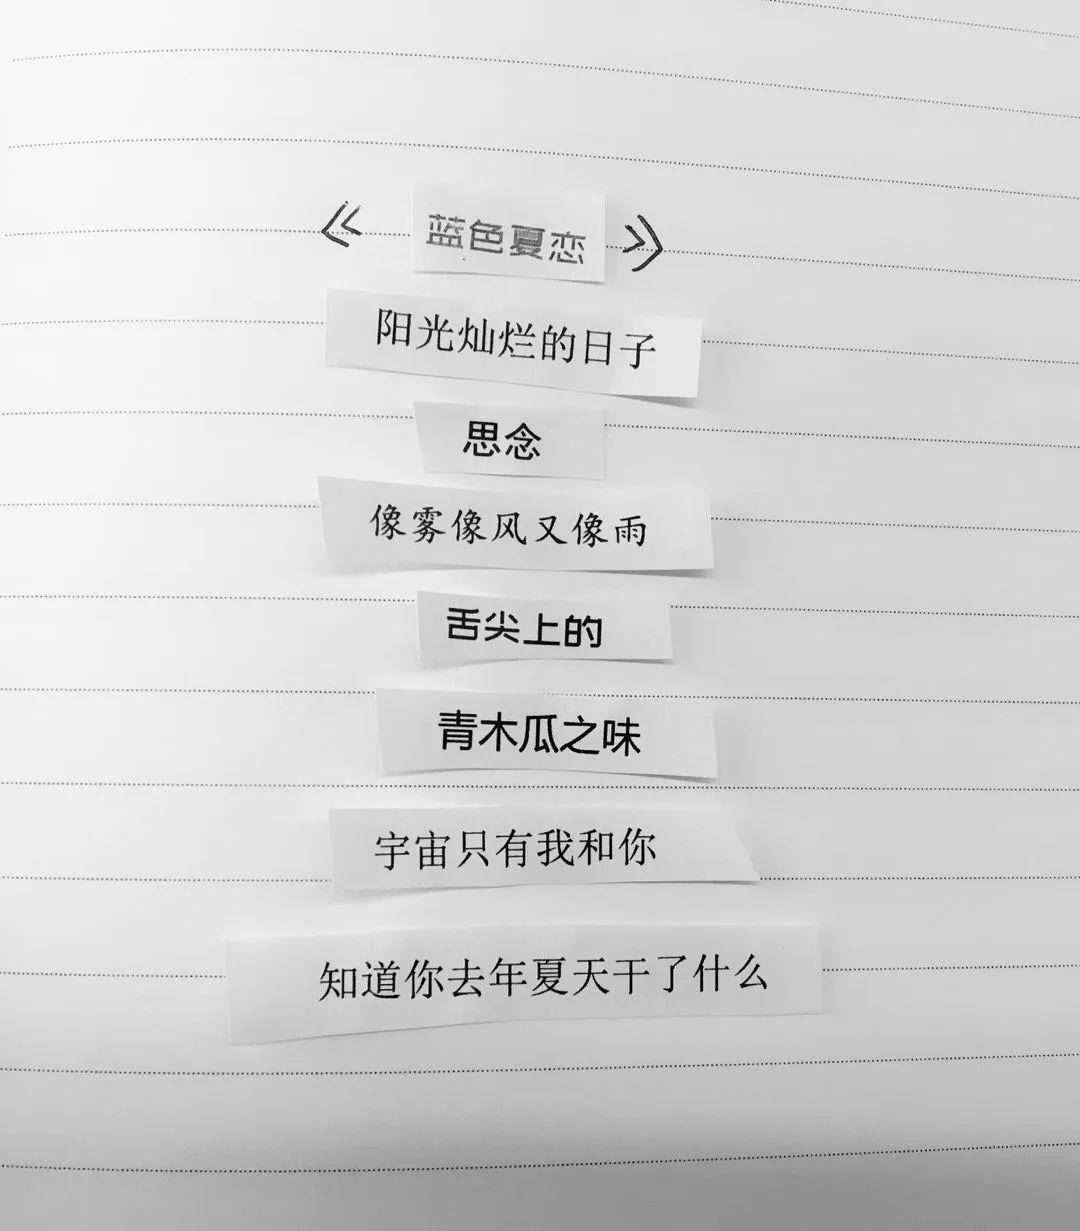 《蓝色夏恋》
阳光灿烂的日子
思念
像雾像风又像雨
舌尖上的
青木瓜之味
宇宙只有我和你
知道你去年夏天干了什么